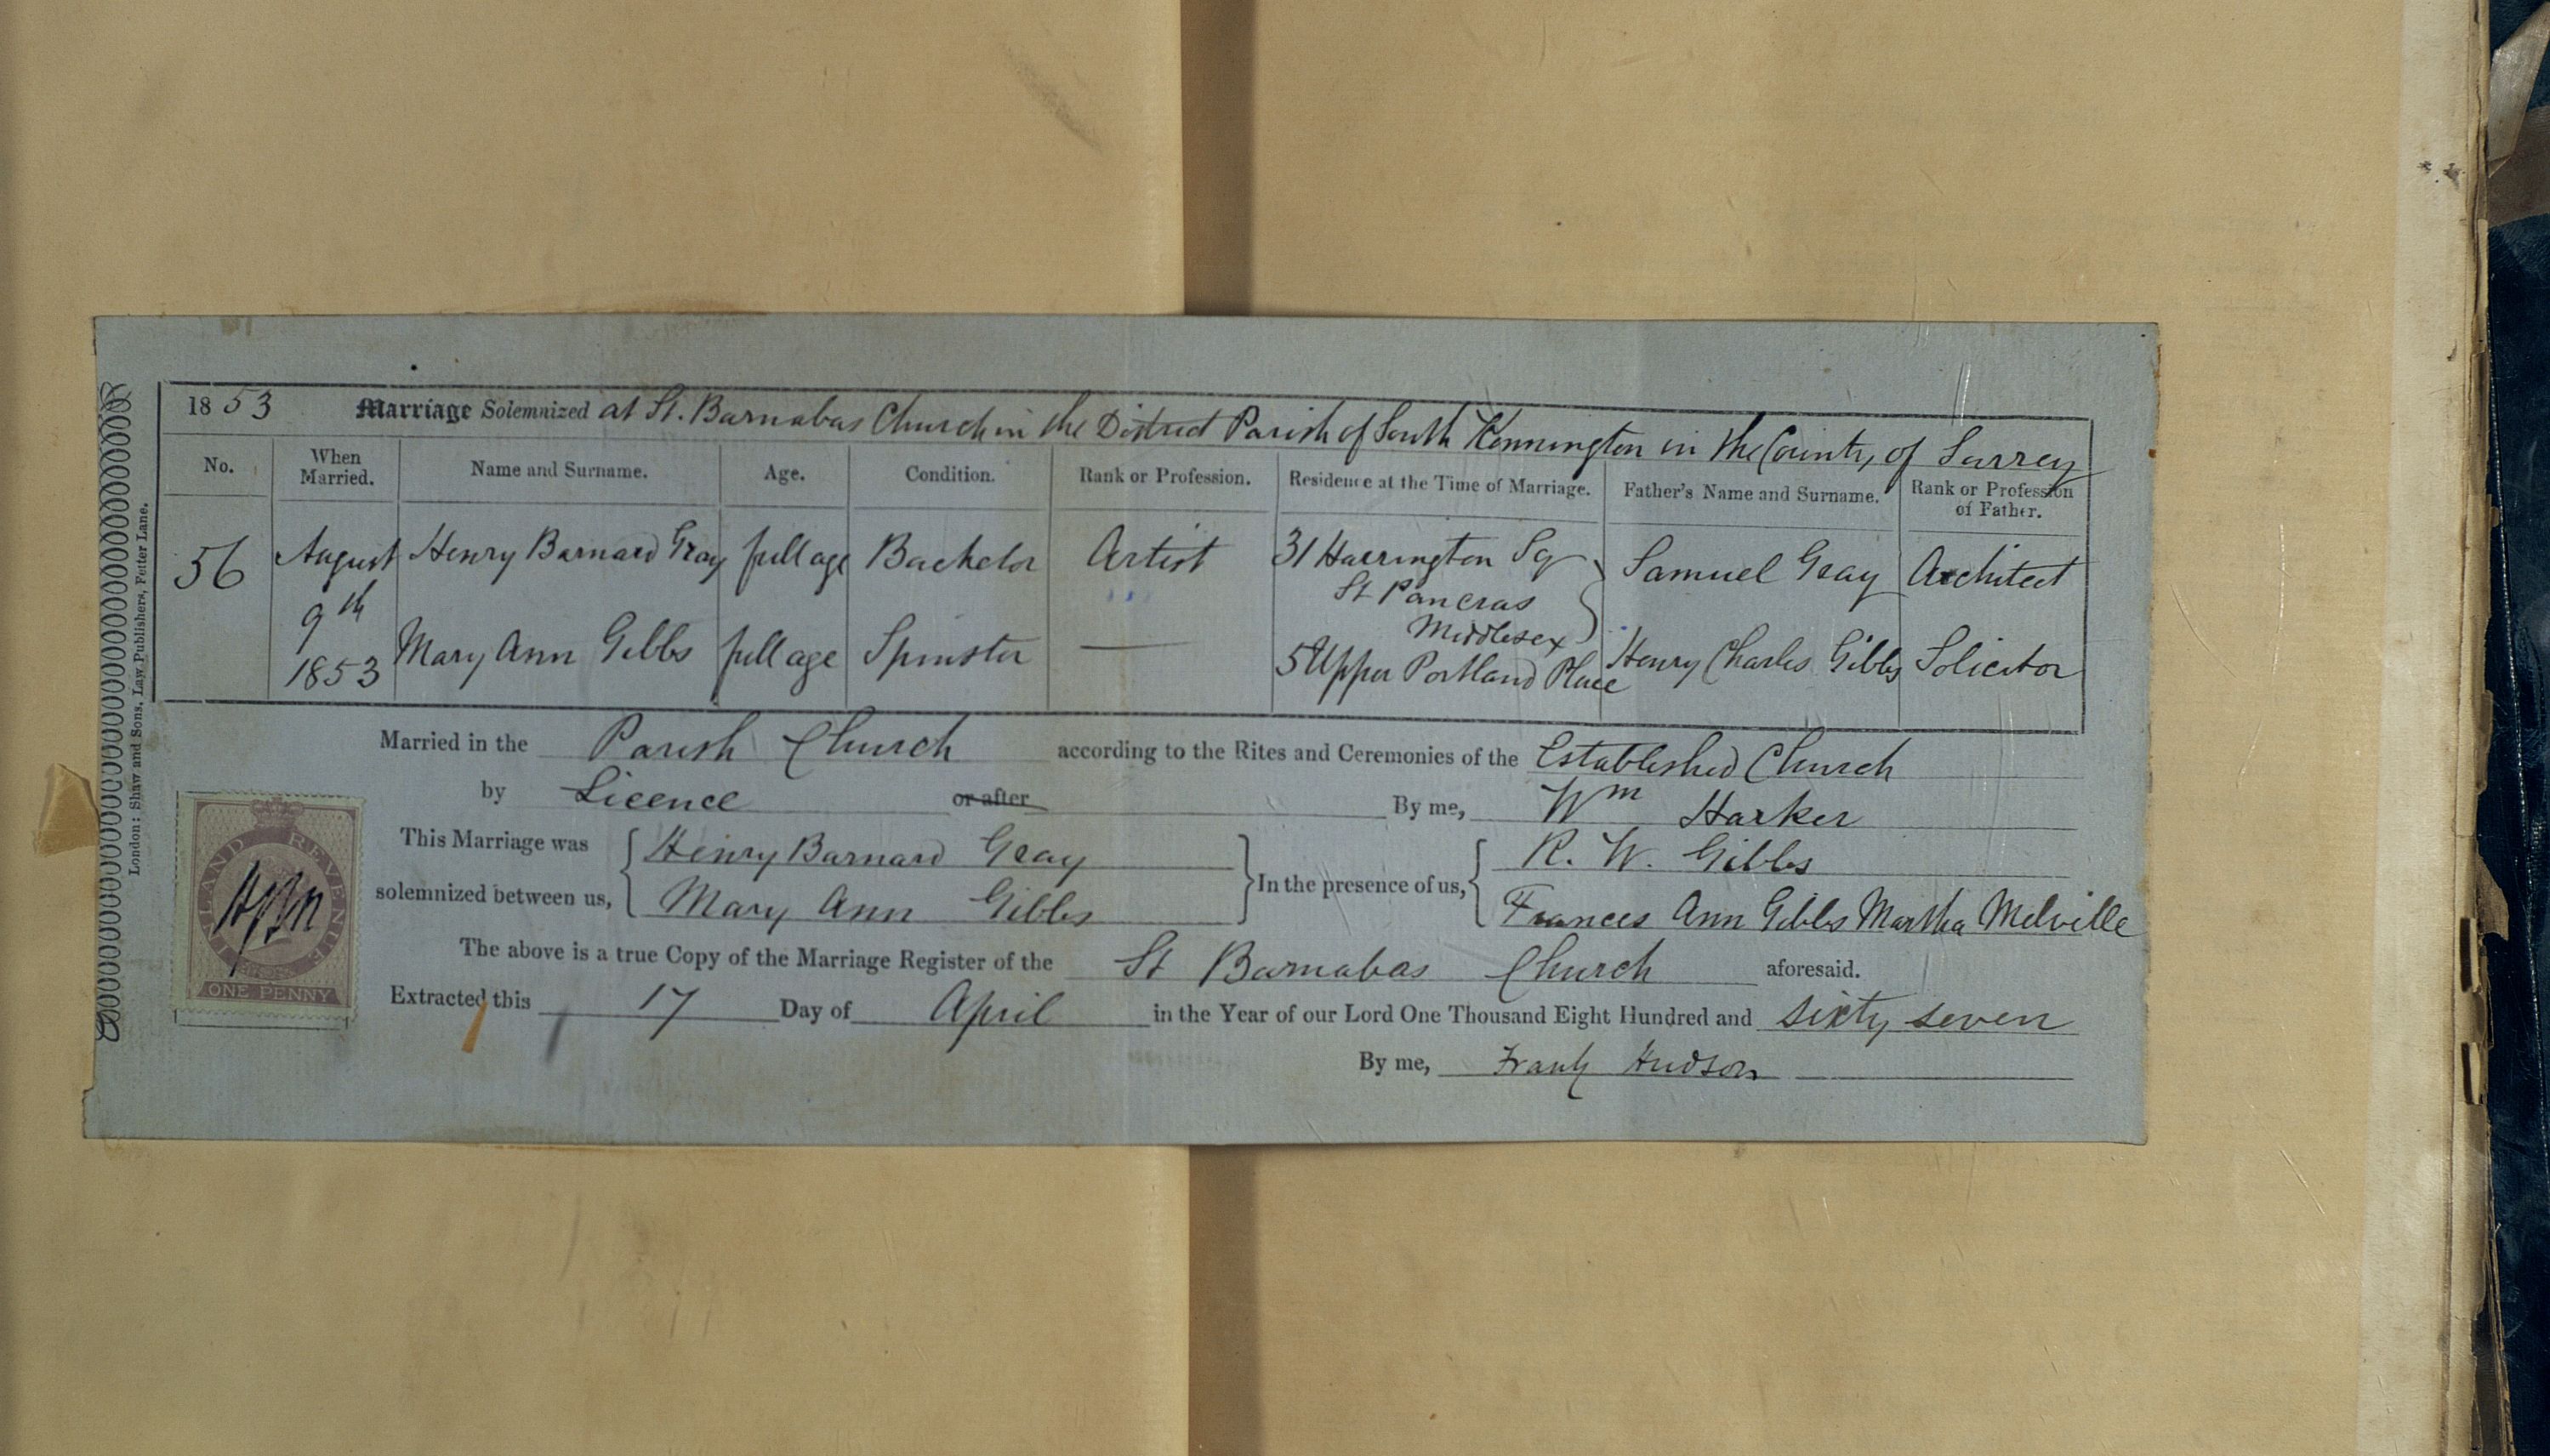 1853 Marriage Solemnized at St. Barnabas Church in the District Parish of South Kennington in the County of Surrey
No. When Married. Name and Surname. Age. Condition. Rank or Profession. Residence at the Time of Marriage. Father's Name and Surname. Rank or Profession of Father.
56 August 9th 1853 Henry Barnard Gray full age Bachelor Artist 31 Harrington Sq St Pancras Middlesex Samuel Gray Architect
Mary Ann Gibbs full age Spinster — 5 Upper Portland Place Henry Charles Gibbs Solicitor
Married in the Parish Church according to the Rites and Ceremonies of the Established Church
by Licence or after By me, Wm Harker
This Marriage was solemnized between us, Henry Barnard Gray In the presence of us, R. W. Gibbs
Mary Ann Gibbs Frances Ann Gibbs Martha Melville
The above is a true Copy of the Marriage Register of the St Barnabas Church aforesaid.
Extracted this 17 Day of April in the Year of our Lord One Thousand Eight Hundred and sixty seven
By me, Frank Hudson
London: Shaw and Sons, Law Publishers, Fetter Lane.
INLAND REVENUE
ONE PENNY